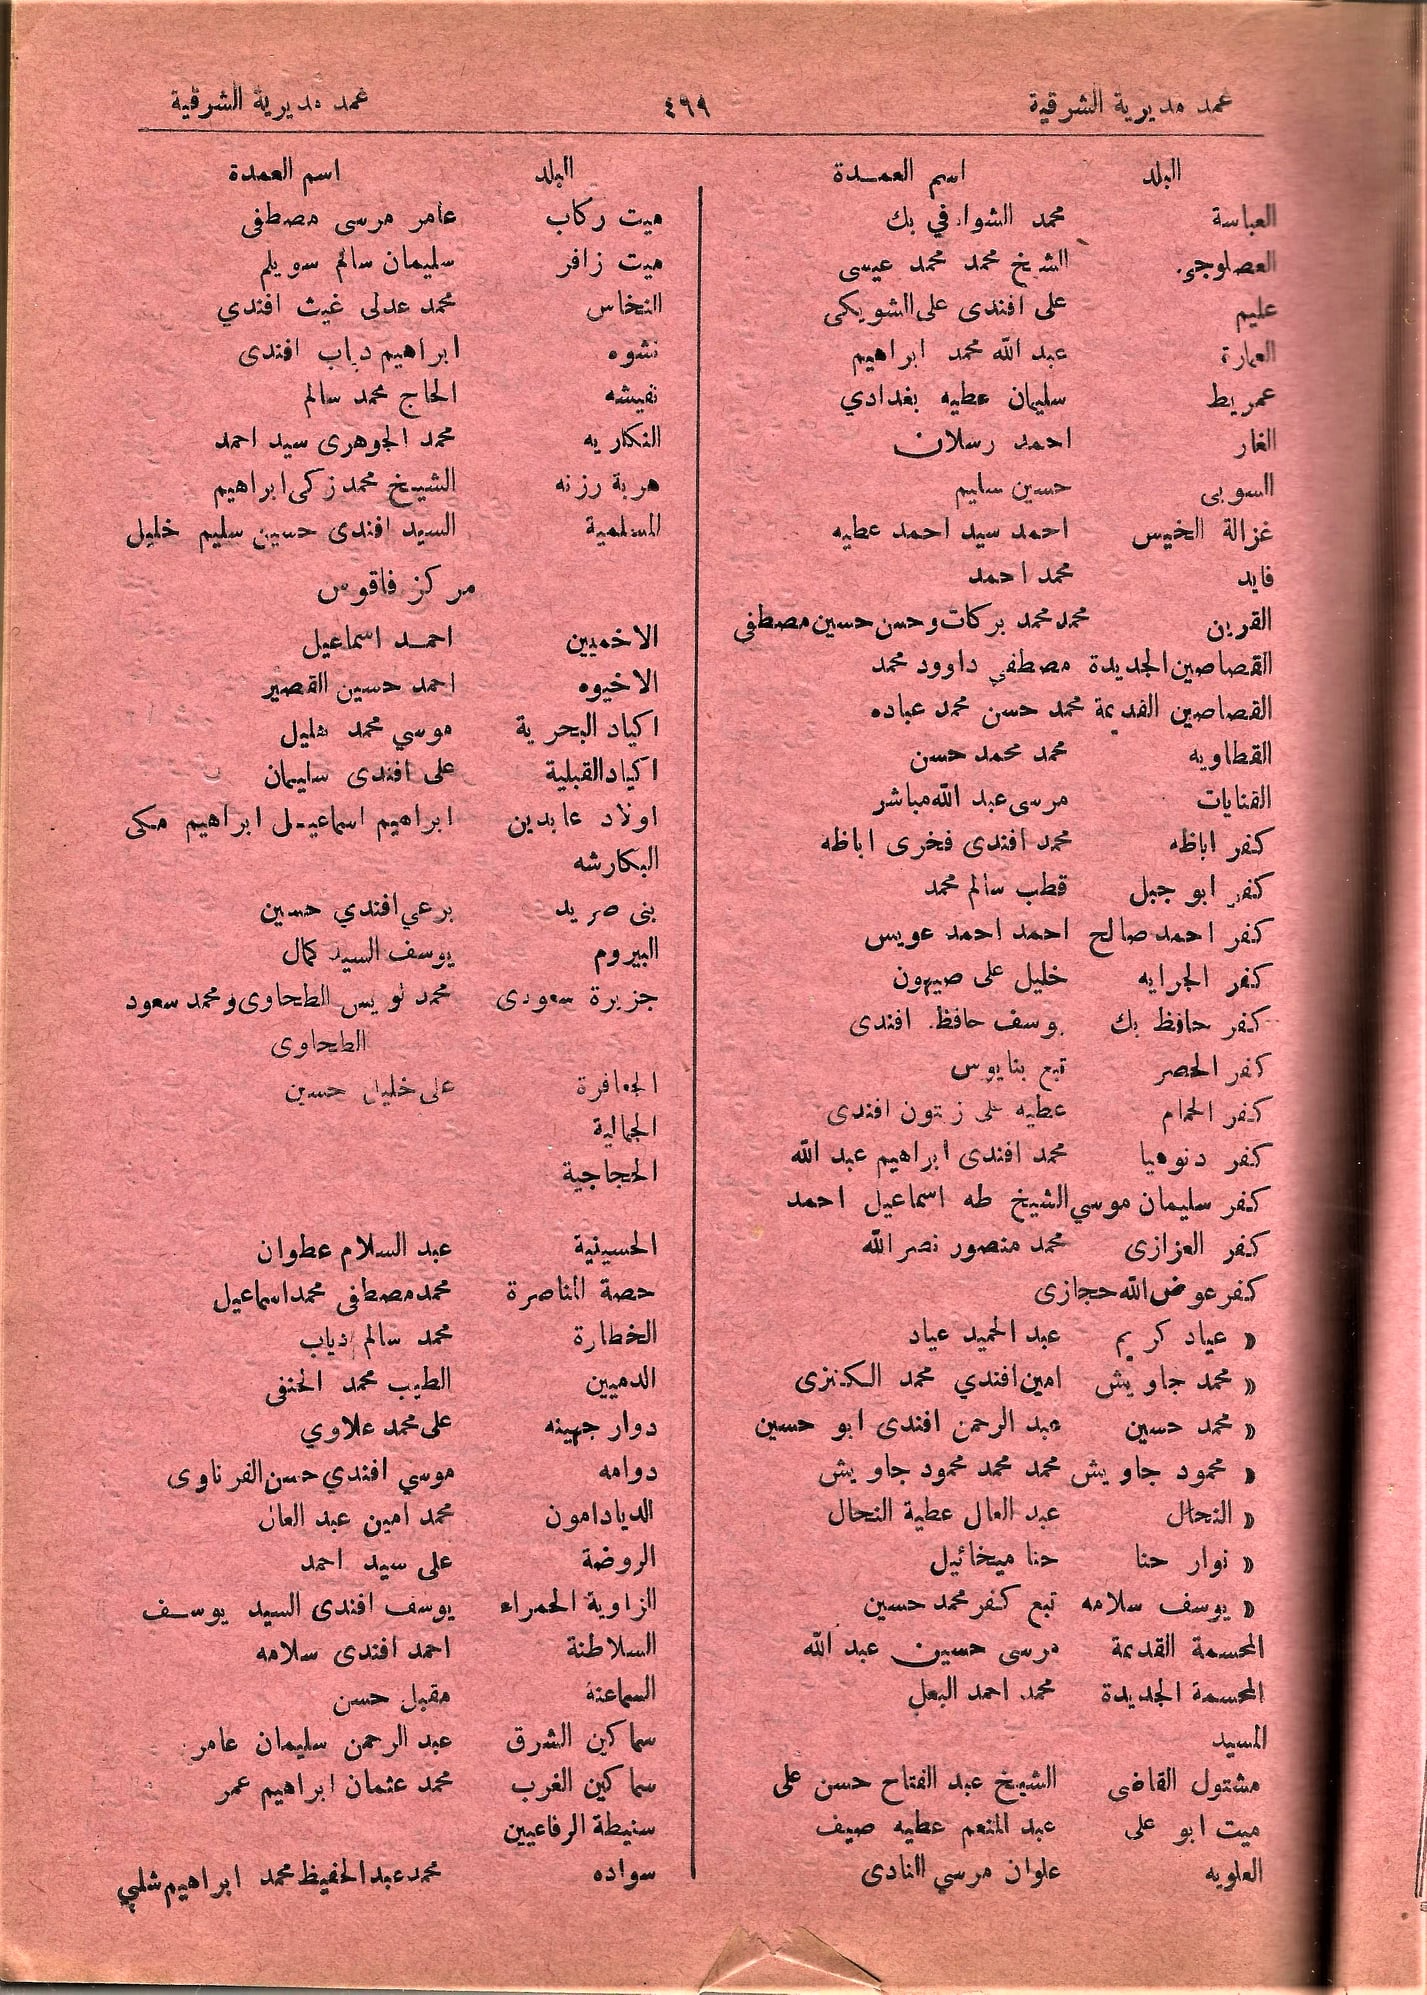 عمد مديرية الشرقية ٤٩٩ عمد مديرية الشرقية
البلد اسم العمدة
العباسة محمد الشوادفي بك
العصلوجى الشيخ محمد محمد عيسى
عليم على افندى على الشويكى
العمارة عبد الله محمد ابراهيم
عمريط سليمان عطيه بغدادي
الغار احمد رسلان
السوبى حسين سليم
غزالة الخيس احمد سيد احمد عطيه
فايد محمد احمد
القرين محمد محمد بركات وحسن حسين مصطفي
القصاصين الجديدة مصطفي داوود محمد
القصاصين القديمة محمد حسن محمد عباده
القطاويه محمد محمد حسن
القنايات مرسى عبد الله مباشر
كفر اباظه محمد افندى فخرى اباظه
كفر ابو جبل قطب سالم محمد
كفر احمد صالح احمد احمد عويس
كفر الجرايه خليل على صيهون
كفر حافظ بك يوسف حافظ افندى
كفر الحصر تبع بنايوس
كفر الحمام عطيه على زيتون افندى
كفر دنوهيا محمد افندى ابراهيم عبد الله
كفر سليمان موسي الشيخ طه اسماعيل احمد
كفر العزازى محمد منصور نصر الله
كفر عوض الله حجازى
« عياد كريم عبد الحميد عياد
« محمد جاويش امين افندي محمد الكنزى
« محمد حسين عبد الرحمن افندى ابو حسين
« محمود جاويش محمد محمد محمود جاويش
« النحال عبد العال عطية النحال
« نوار حنا حنا ميخائيل
« يوسف سلامه تبع كفر محمد حسين
المحسمة القديمة مرسى حسين عبد الله
المحسمة الجديدة محمد احمد البعل
المسيد
مشتول القاضى الشيخ عبد الفتاح حسن على
ميت ابو على عبد المنعم عطيه صيف
العلويه علوان مرسي النادى
البلد اسم العمدة
ميت ركاب عامر مرسى مصطفى
ميت زافر سليمان سالم سويلم
النخاس محمد عدلى غيث افندي
نشوه ابراهيم دياب افندى
نفيشه الحاج محمد سالم
النكاريه محمد الجوهرى سيد احمد
هرية رزنه الشيخ محمد زكى ابراهيم
المسلمية السيد افندى حسين سليم خليل
مركز فاقوس
الاخميين احمد اسماعيل
الاخيوه احمد حسين القصير
اكياد البحرية موسي محمد هليل
اكياد القبلية على افندى سليمان
اولاد عابدين ابراهيم اسماعيل ابراهيم مكى
البكارشه
بنى صريد برعي افندي حسين
البيروم يوسف السيد كمال
جزيرة سعودى محمد لويس الطحاوى ومحمد سعود
الطحاوى
الجعافرة على خليل حسين
الجمالية
الحجاجية
الحسينية عبد السلام عطوان
حصة المناصرة محمد مصطفى محمد اسماعيل
الخطارة محمد سالم دياب
الدميين الطيب محمد الحنفى
دوار جهينه على محمد علاوي
دوامه موسي افندي حسن الفرناوى
الديادامون محمد امين عبد العال
الروضة على سيد احمد
الزاوية الحمراء يوسف افندى السيد يوسف
السلاطنة احمد افندى سلامه
السماعنة مقبل حسن
سماكين الشرق عبد الرحمن سليمان عامر
سماكين الغرب محمد عثمان ابراهيم عمر
سنيطة الرفاعيين
سواده محمد عبد الحفيظ محمد ابراهيم شلبي